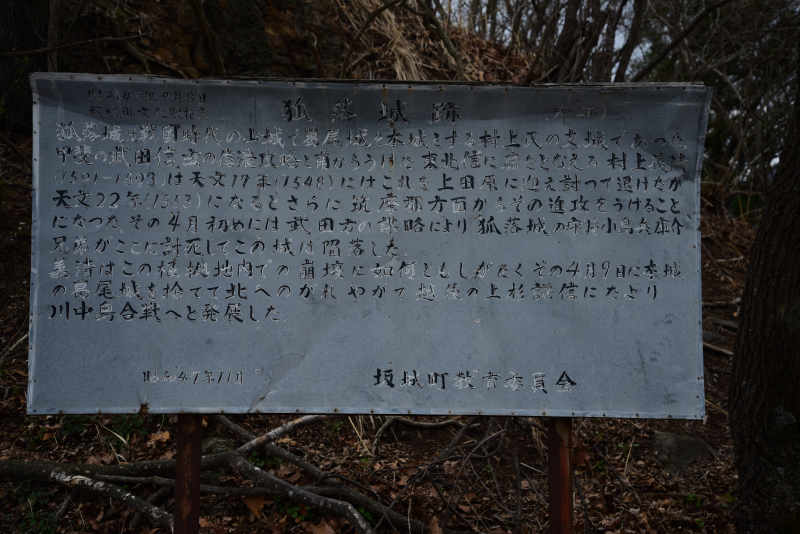 狐落城跡
狐落城は戦国時代の山城で葛尾城を本城とする村上氏の支城であつた
甲斐の武田信玄の信濃攻略を前からうけた東北信に覇をとなえる村上義清
(1501-1573)は天文17年(1548)にはこれを上田原に迎え討つて退けたが
天文22年(1553)になるとさらに筑摩郡方面からその進攻をうけること
になつたその4月初めには武田方の謀略により狐落城の守将小島兵庫介
兄弟がここに討死してこの城は陥落した
義清はこの根拠地内での崩壊に如何ともしがたくその4月9日に本城
の葛尾城を捨てて北へのがれやがて越後の上杉謙信にたより
川中島合戦へと発展した
昭和47年11月 坂城町教育委員会